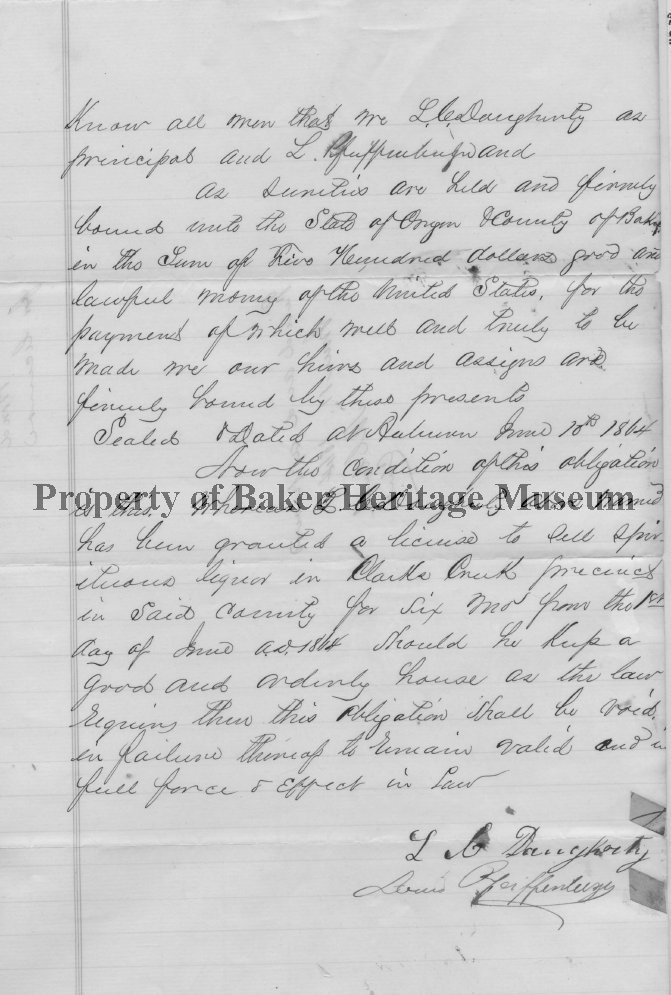 Know all men that we L. C. Daugherty as
principal and L. Pfeiffenberger and
as sureties are held and firmly
bound unto the State of Oregon & County of Baker
in the Sum of Five Hundred dollars good and
lawful money of the United States, for the
payment of which well and truly to be
made we our heirs and assigns are
firmly bound by these presents
Sealed & Dated at Auburn June 10th 1864
Now the condition of this obligation
Property of Baker Heritage Museum
is this. Whereas L C Daugherty above named
has been granted a license to sell spir-
ituous liquor in Clarks Creek precinct
in Said County for six mo from the 1st
day of June A.D. 1864 Should he keep a
good and orderly house as the law
requires then this obligation shall be void,
in failure thereof to remain valid and in
full force & effect in Law
L C Daugherty
Louis Pfeiffenberger